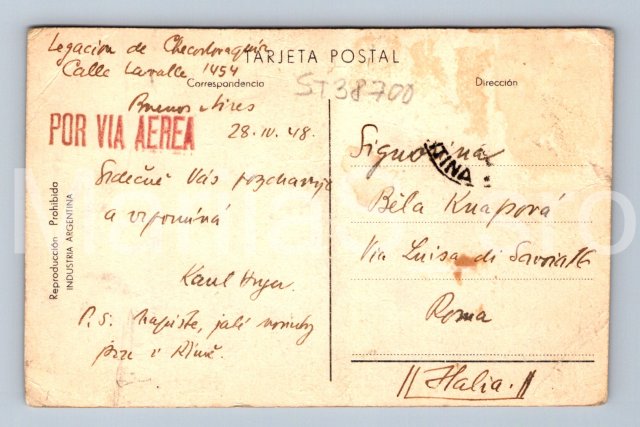 Legación de Checoslovaquia
TARJETA POSTAL
Calle Lavalle 1454
Correspondencia
Dirección
ST38700
Buenos Aires
POR VIA AEREA
28.IV.48.
Srdečně Vás pozdravuje
a vzpomíná
Karel
P.S. Napište, jaké
v Římě.
Signorina
TINA
Běla Knapová
Via Luisa di Savoia 16
Roma
// Italia. //
Reproducción Prohibida
INDUSTRIA ARGENTINA